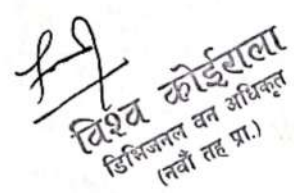 विश्व कोईराला
डिभिजनल वन अधिकृत
(नवौं तह प्रा.)